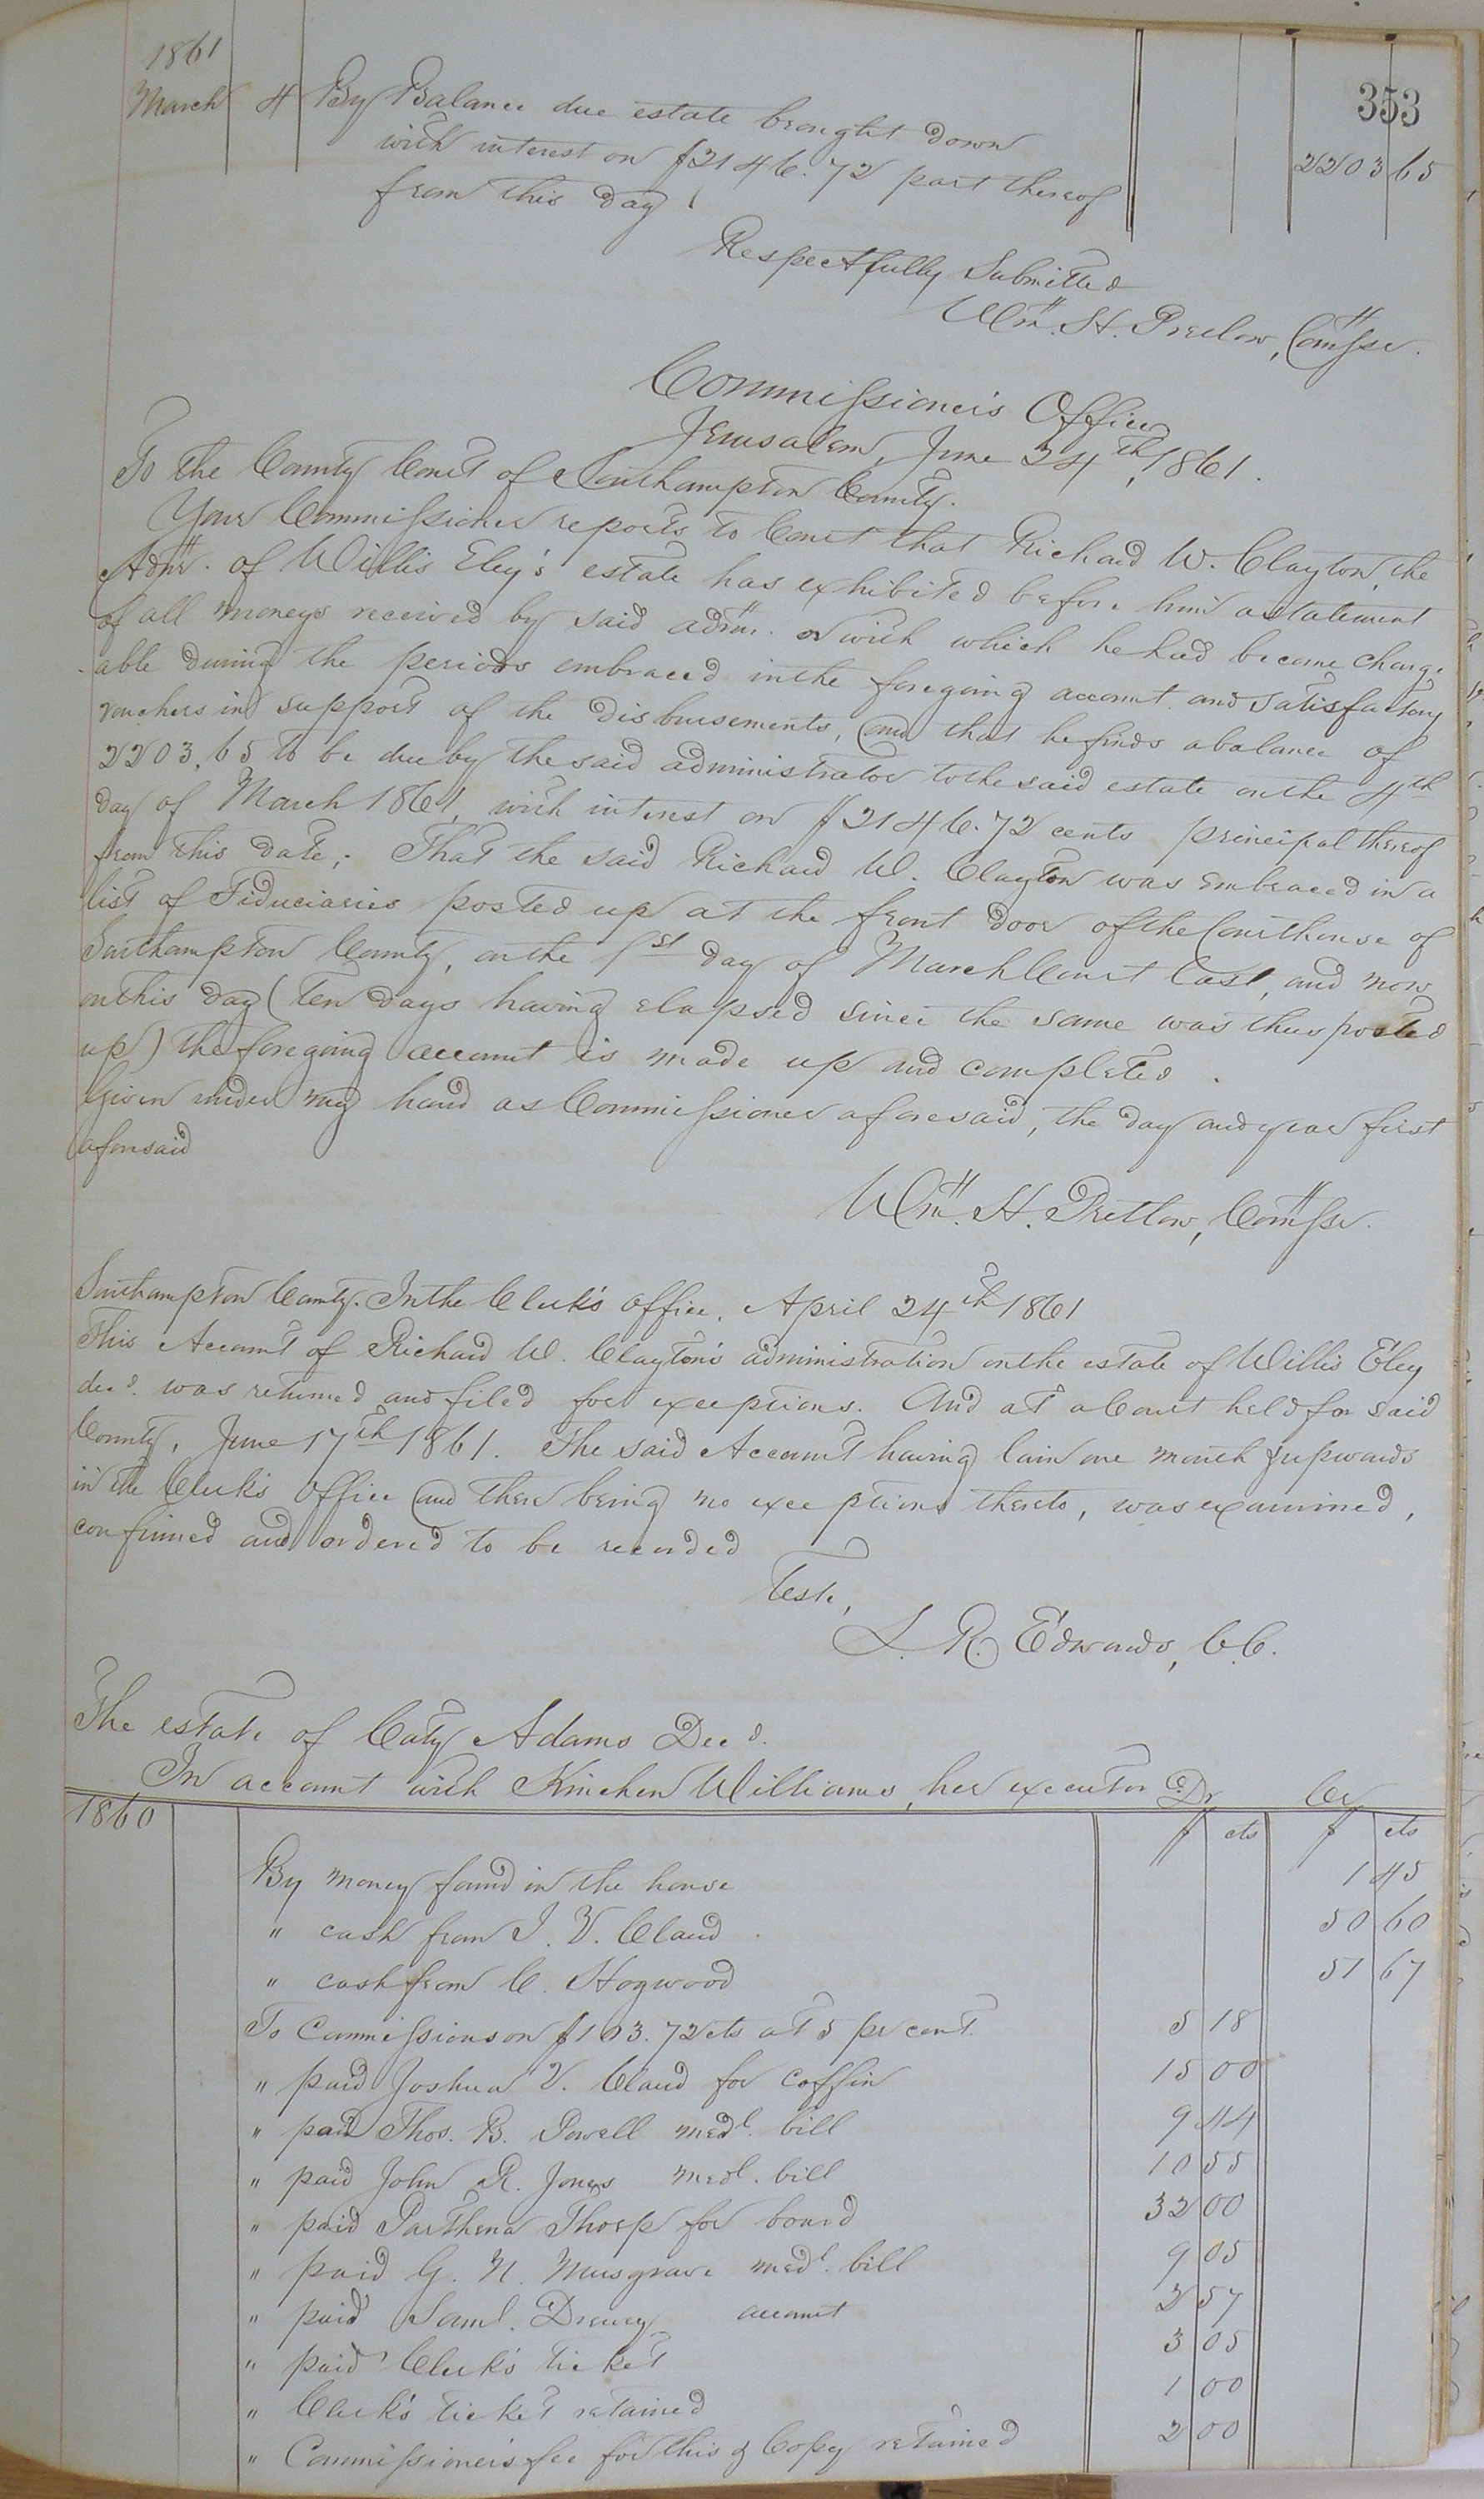 353
1861
March 4 By Balance due estate brought down
with interest on $2146.72 part thereof
from this day 2203 65
Respectfully Submitted
Wm. H. Pretlow, Commssr.
Commissioner's Office
Jerusalem, June 24th, 1861.
To the County Court of Southampton County.
Your Commissioner reports to Court that Richard W. Clayton, the
Admr. of Willis Eley's estate has exhibited before him a statement
of all moneys received by said admr. or with which he had become charge
able during the periods embraced in the foregoing account and satisfactory
vouchers in support of the disbursements, and that he finds a balance of
2203.65 to be due by the said administrator to the said estate on the 4th
day of March 1861, with interest on $2146.72 cents principal thereof
from this date; That the said Richard W. Clayton was embraced in a
list of Fiduciaries posted up at the front door of the Courthouse of
Southampton County, on the 1st day of March Court last, and now
on this day (ten days having elapsed since the same was thus posted
up) the foregoing account is made up and completed.
Given under my hand as Commissioner aforesaid, the day and year first
aforesaid
Wm. H. Pretlow, Commssr.
Southampton County. In the Clerk's Office. April 24th 1861
This Account of Richard W. Clayton's administration on the estate of Willis Eley
decd. was returned and filed for exceptions. And at a Court held for said
County, June 17th 1861. The said Account having lain one month & upwards
in the Clerk's Office and there being no exceptions thereto, was examined,
confirmed and ordered to be recorded
Teste,
L. R. Edwards, C.C.
The estate of Caty Adams Decd.
In account with Kinchen Williams, her executor Dr Cr
1860 $ cts $ cts
By money found in the house 1 45
" cash from J. V. Claud 50 60
" cash from C. Hogwood 51 67
To Commissions on $103.72 cts at 5 pr cent. 5 18
" paid Joshua V. Claud for coffin 15 00
" paid Thos. B. Powell medl. bill 9 44
" paid John R. Jones medl. bill 10 55
" paid Parthena Thorp for board 32 00
" paid G. N. Musgrave medl. bill 9 05
" paid Saml. Drewry account 2 57
" paid Clerk's ticket 3 05
" Clerk's ticket retained 1 00
" Commissioner's fee for this & Copy retained 2 00